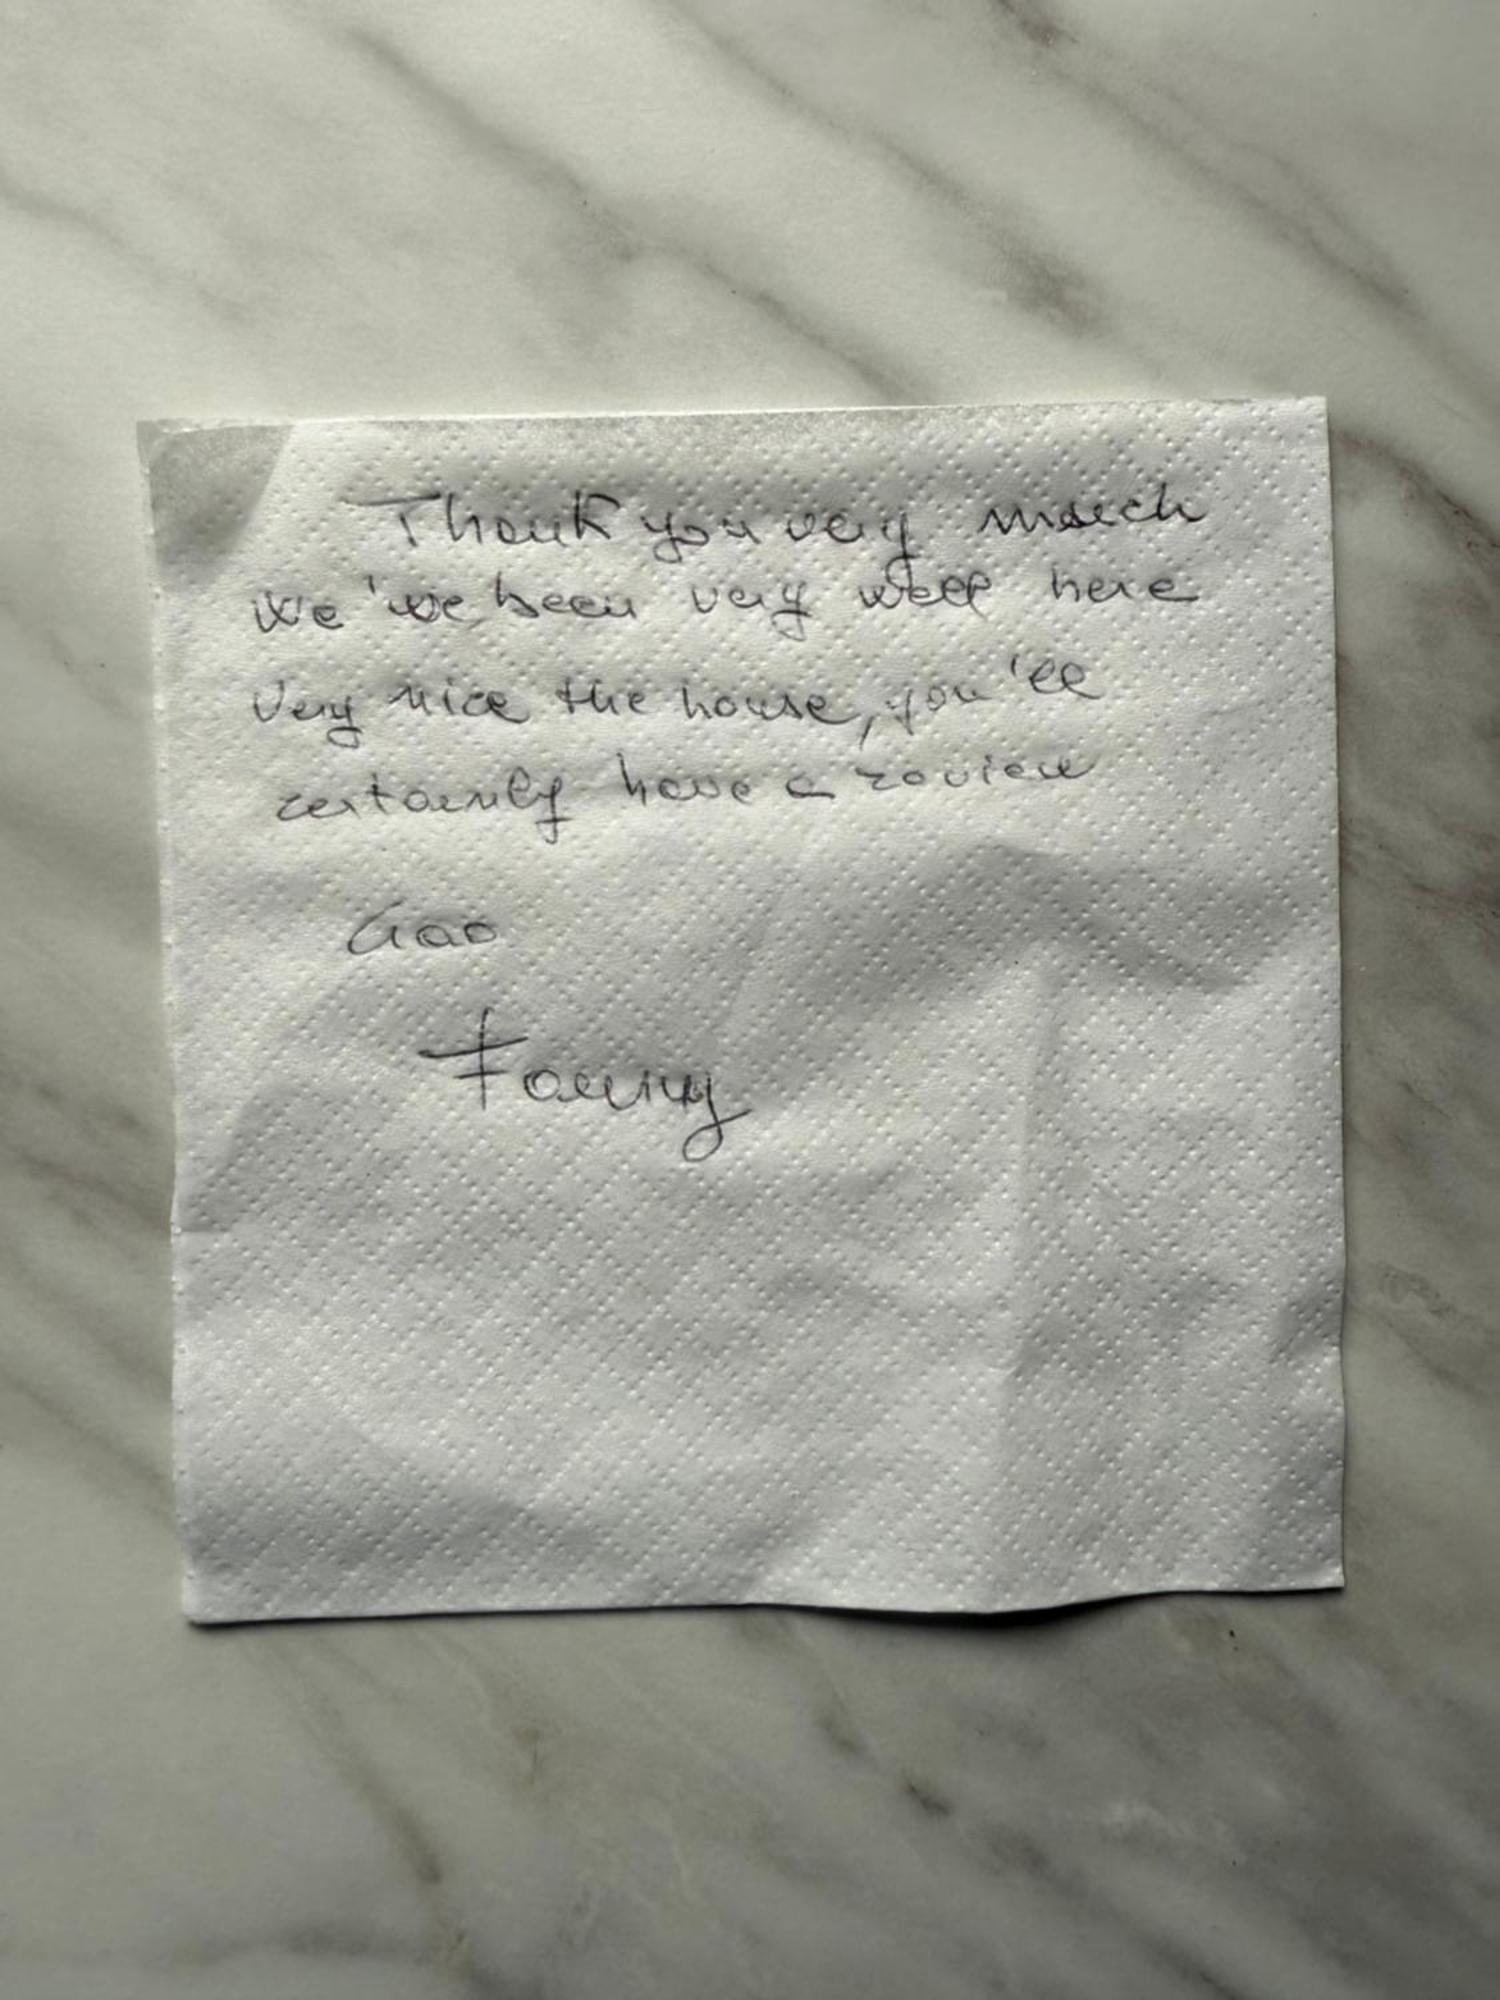 Thank you very much
we've been very well here
Very nice the house, you'll
certainly have a review
Ciao
Fanny